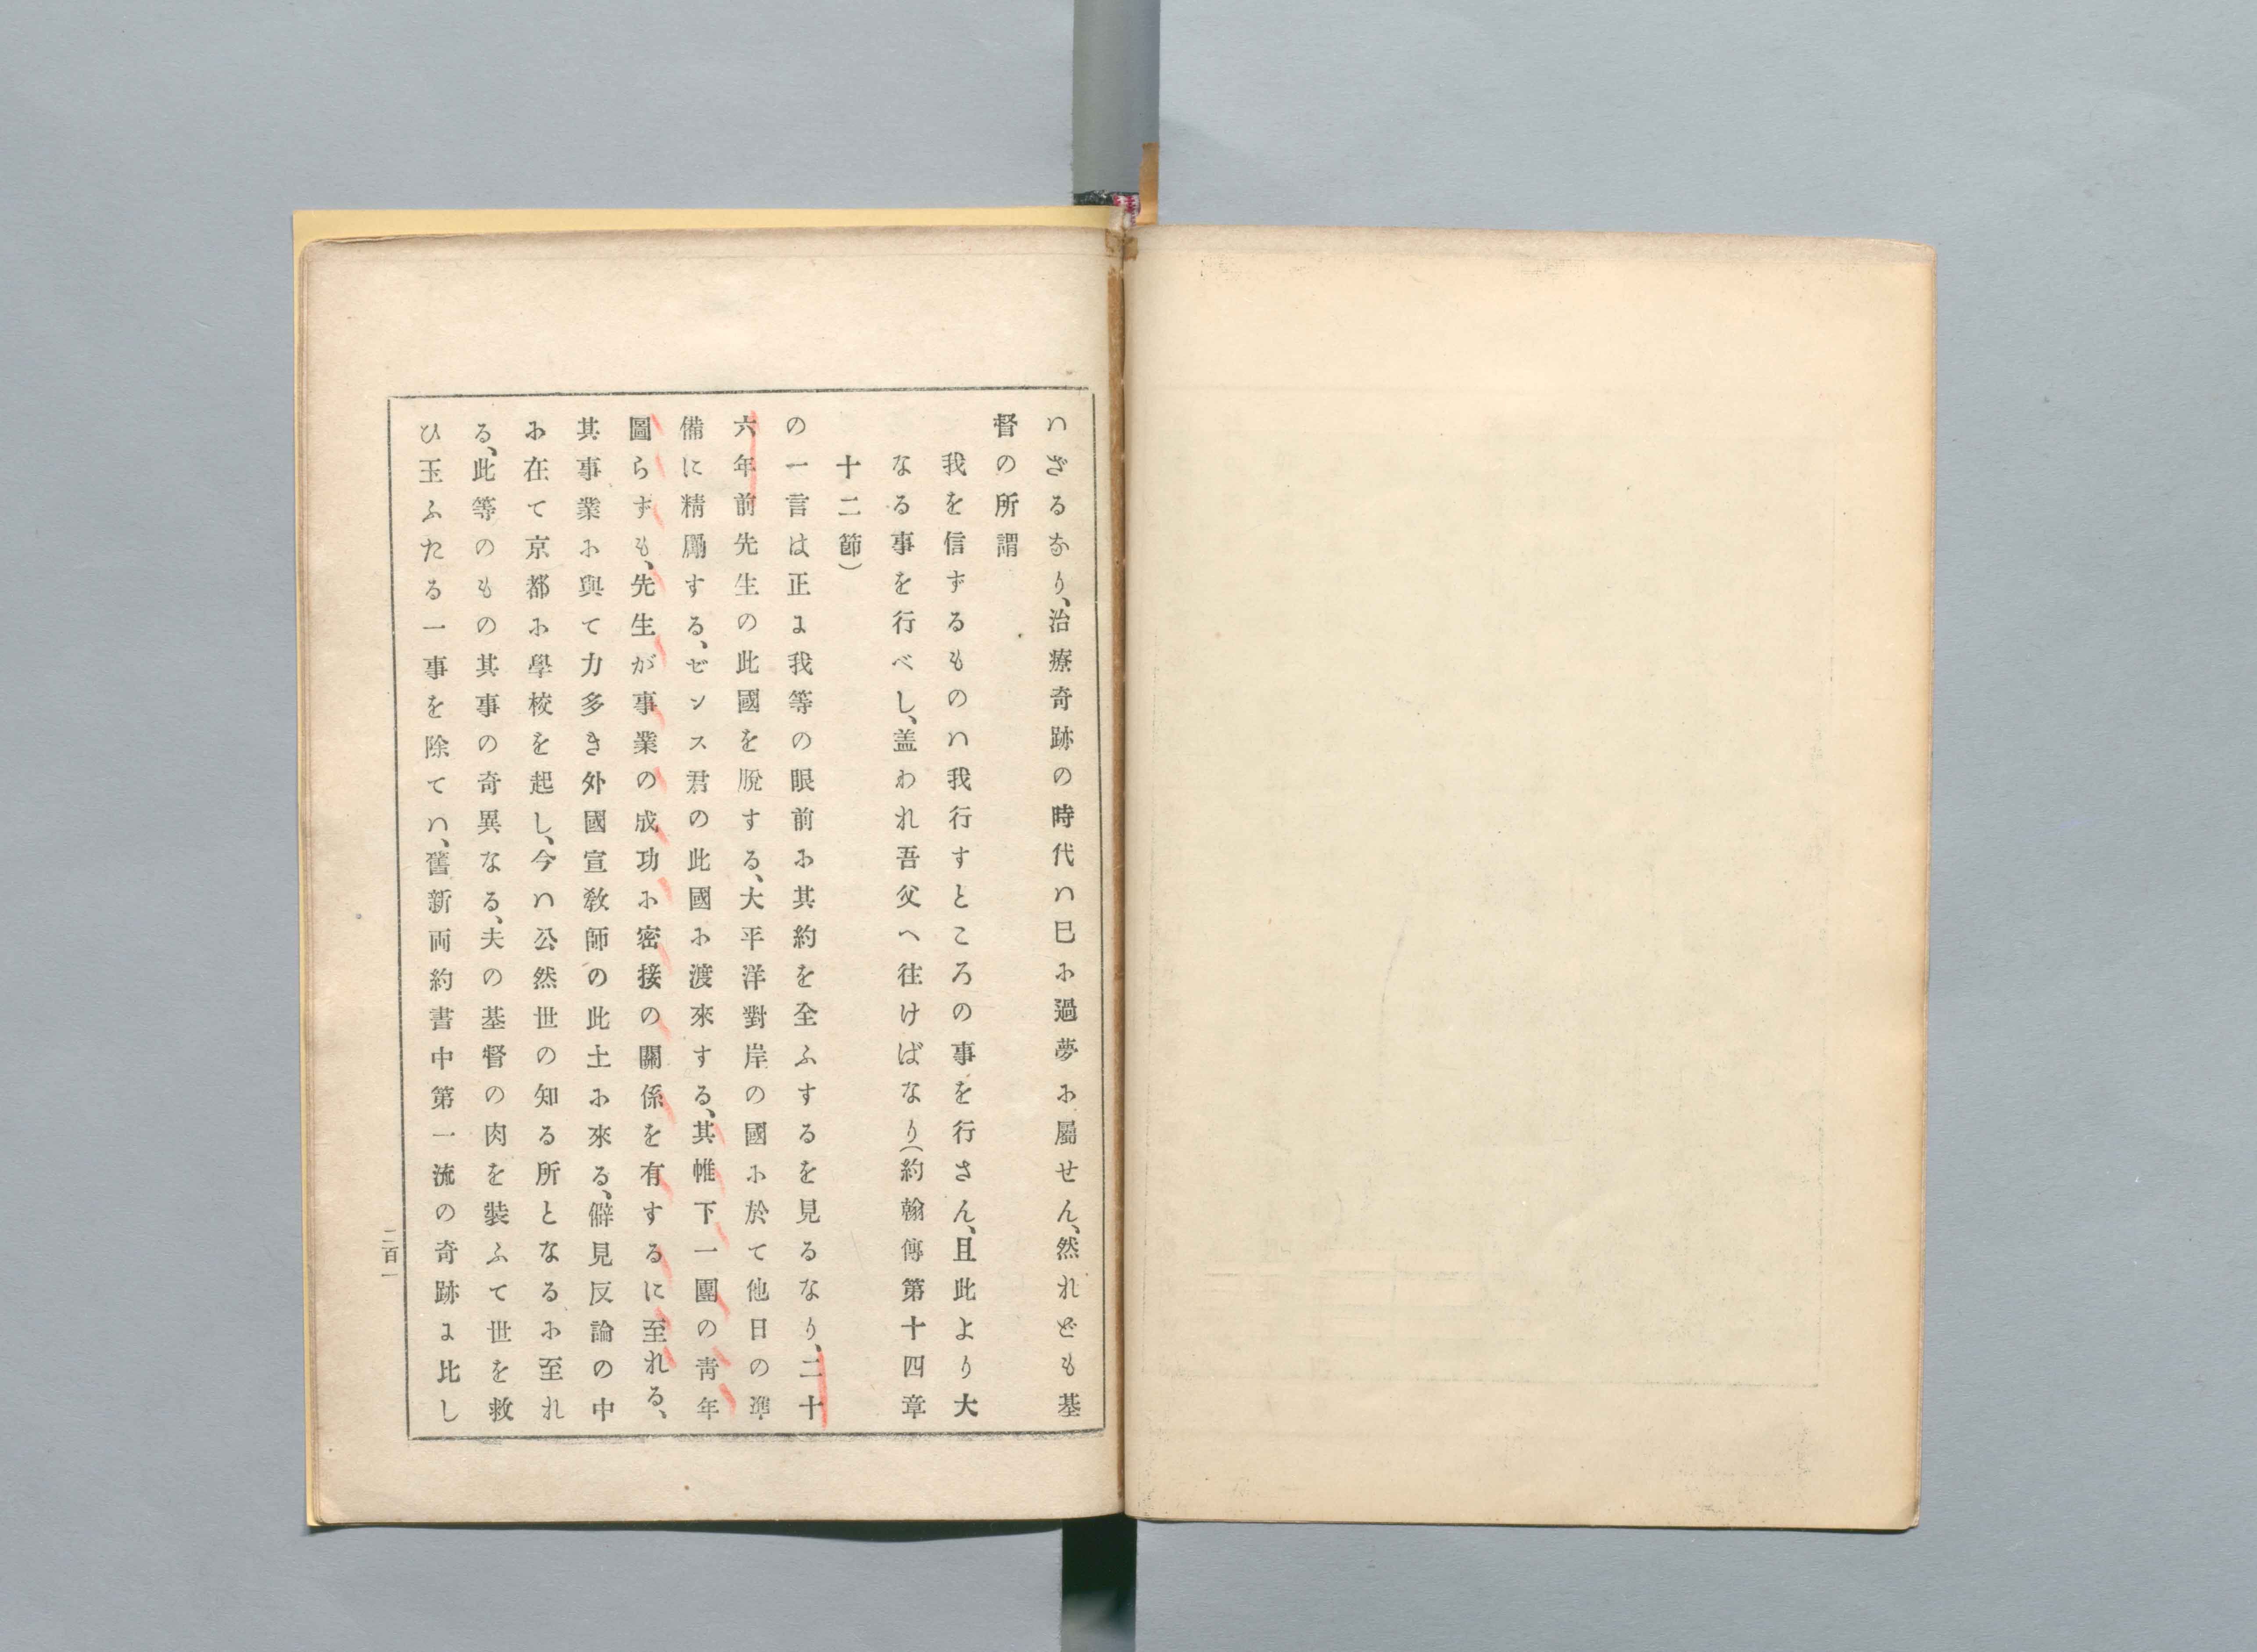 ハざるなり、治療奇跡の時代ハ巳に過夢に屬せん、然れども基
督の所謂
我を信ずるものハ我行すところの事を行さん、且此より大
なる事を行べし、盖われ吾父へ往けばなり(約翰傳第十四章
十二節)
の一言は正に我等の眼前に其約を全ふするを見るなり、二十
六年前先生の此國を脫する、大平洋對岸の國に於て他日の準
備に精勵する、ゼンス君の此國に渡來する、其帷下一團の靑年
圖らずも、先生が事業の成功に密接の關係を有するに至れる、
其事業に與て力多き外國宣敎師の此土に來る、僻見反論の中
に在て京都に學校を起し、今ハ公然世の知る所となるに至れ
る、此等のもの其事の奇異なる、夫の基督の肉を裝ふて世を救
ひ玉ふたる一事を除てハ、舊新両約書中第一流の奇跡に比し
二百一